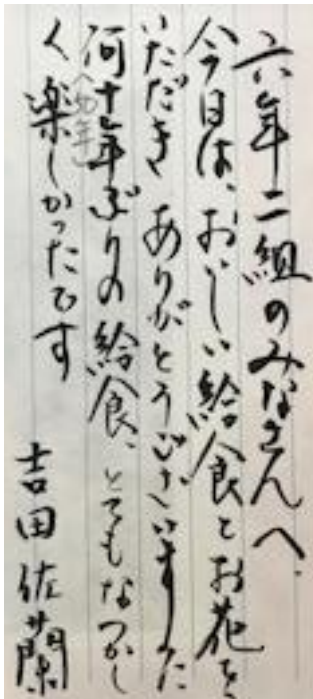 六年二組のみなさんへ、
今日は、おいしい給食とお花を
いただき ありがとうございました
何十年ぶりの給食、とてもなつかし
く楽しかったです
吉田佐蘭